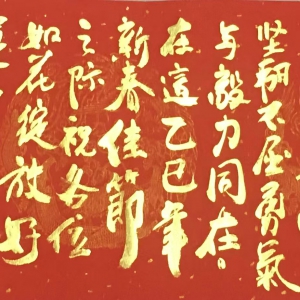 坚韧不屈勇氣
与毅力同在
在這乙巳年
新春佳節
之际祝各位
如花绽放好